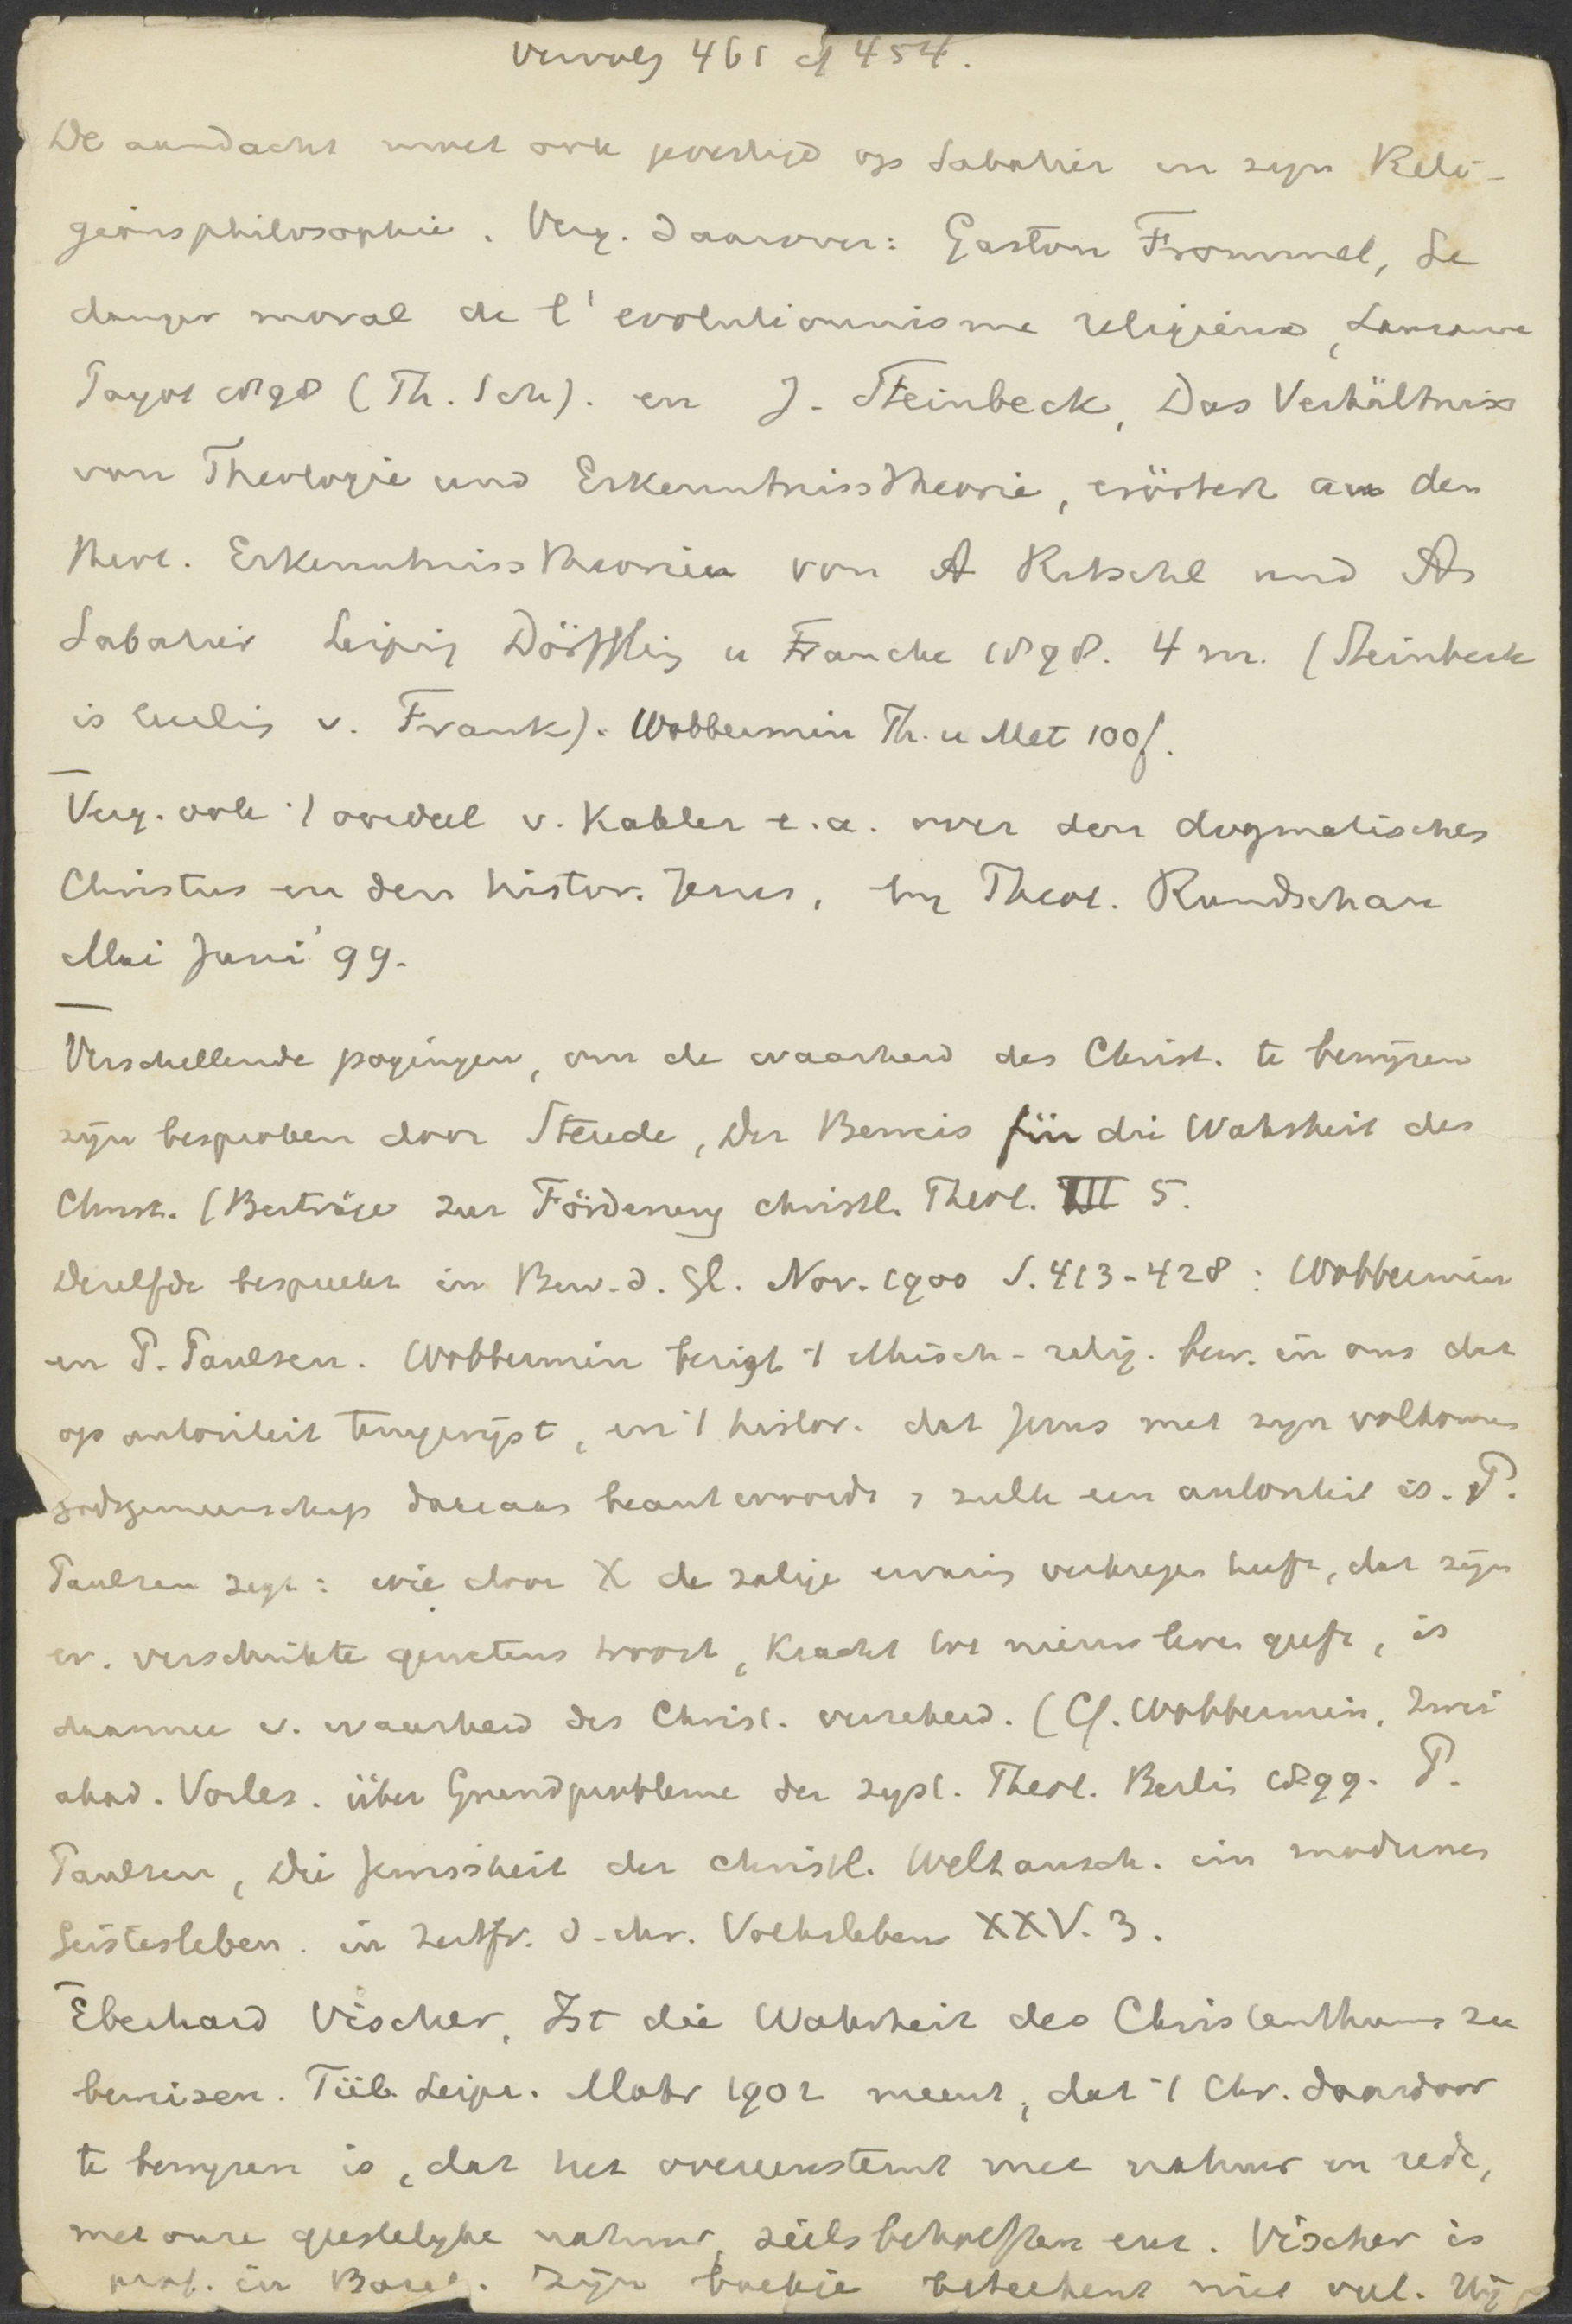 Vervolg 461 cf 454.
De aandacht moet ook gevestigd op Sabatier en zijn Reli-
gionsphilosophie. Verg. daarover: Gaston Frommel, Le
danger moral de l'evolutionnisme religieux, Lausanne
Payot 1898 (Th. Sch). en J. Steinbeck, Das Verhältniss
von Theologie und Erkenntnisstheorie, erörtert an den
theol. Erkenntnisstheorien von A Ritschl und A
Sabatier Leipzig Dörffling u Francke 1898. 4 m. (Steinbeck
is leerling v. Frank). Wobbermin Th. u Met 100f.
Verg. ook 't oordeel v. Kähler e.a. over den dogmatischen
Christus en den histor. Jezus, in Theol. Rundschau
Mai Juni '99.
Verschillende pogingen, om de waarheid des Christ. te bewijzen
zijn besproken door Steude, Der Beweis für die Wahrheit des
Christ. (Beiträge zur Förderung christl. Theol. III 5.
Dezelfde bespreekt in Bew. d. Gl. Nov. 1900 S. 413-428: Wobbermin
en P. Paulsen. Wobbermin bezigt 't ethisch-relig. bew. in ons dat
op autoriteit teruggrijpt, en 't histor. dat Jezus met zijn volkomen
godsgemeenschap daaraan beantwoordt, zulk een autoriteit is. P.
Paulsen zegt: wie door X de zalige ervaring verkregen heeft, dat zijn
ev. verschrikte gewetens troost, kracht tot nieuw leven geeft, is
daarmee v. waarheid des Christ. verzekerd. (Cf. Wobbermin, Zwei
akad. Vorles. über Grundprobleme der syst. Theol. Berlin 1899. P.
Paulsen, Die Gewissheit der christl. Weltansch. im modernen
Geistesleben. in Zeitfr. d. chr. Volkslebens XXV. 3.
Eberhard Vischer, Ist die Wahrheit des Christenthums zu
beweisen. Tüb. Leipz. Mohr 1902 meent, dat 't Chr. daardoor
te bewijzen is, dat het overeenstemt met natuur en rede,
met onze geestelijke natuur, zielsbehoeften enz. Vischer is
prof. in Basel. Zijn boekje beteekent niet veel. Hij